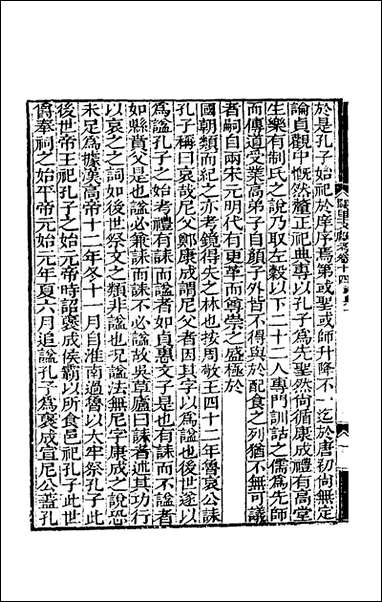 於是孔子始祀於庠序焉第或聖或師升降不一迄於唐初尚無定
論貞觀中慨然釐正祀典專以孔子為先聖然尚循康成禮有高堂
生樂有制氏之說乃取左穀以下二十二人專門訓詁之儒為先師
而傳道受業高弟子自顏子外皆不得與於配食之列猶不無可議
者嗣自兩宋元明代有更革而尊崇之盛極於
國朝類而紀之亦考鏡得失之林也按周敬王四十二年魯哀公誄
孔子稱曰哀哉尼父鄭康成謂尼父者因其字以為諡也後世遂以
為諡孔子之始考禮有誄而諡者如貞惠文子是也有誄而不諡者
如縣賁父是也諡必兼誄而誄不必諡故吳草廬曰誄者述其功行
以哀之之詞如後世祭文之類非諡也况諡法無尼字康成之說恐
未足為據漢高帝十二年冬十一月自淮南過魯以大牢祭孔子此
後世帝王祀孔子之始元帝時詔褒成侯霸以所食邑祀孔子此世
爵奉祀之始平帝元始元年夏六月追諡孔子為褒成宣尼公蓋孔